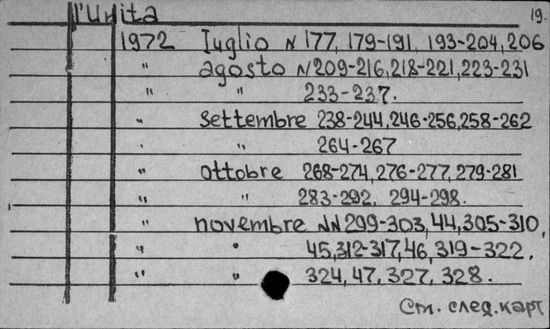 l'Unita
19.
1972 Iuglio N 177, 179-191, 193-204, 206
" agosto N 209-216, 218-221, 223-231
" " 233-237.
" settembre 238-244, 246-256, 258-262
" 264-267
" ottobre 268-274, 276-277, 279-281
" " 283-292, 294-298.
" novembre NN 299-303, 44, 305-310,
" " 45, 312-317, 46, 319-322,
" " 324, 47, 327, 328.
См. след. карт